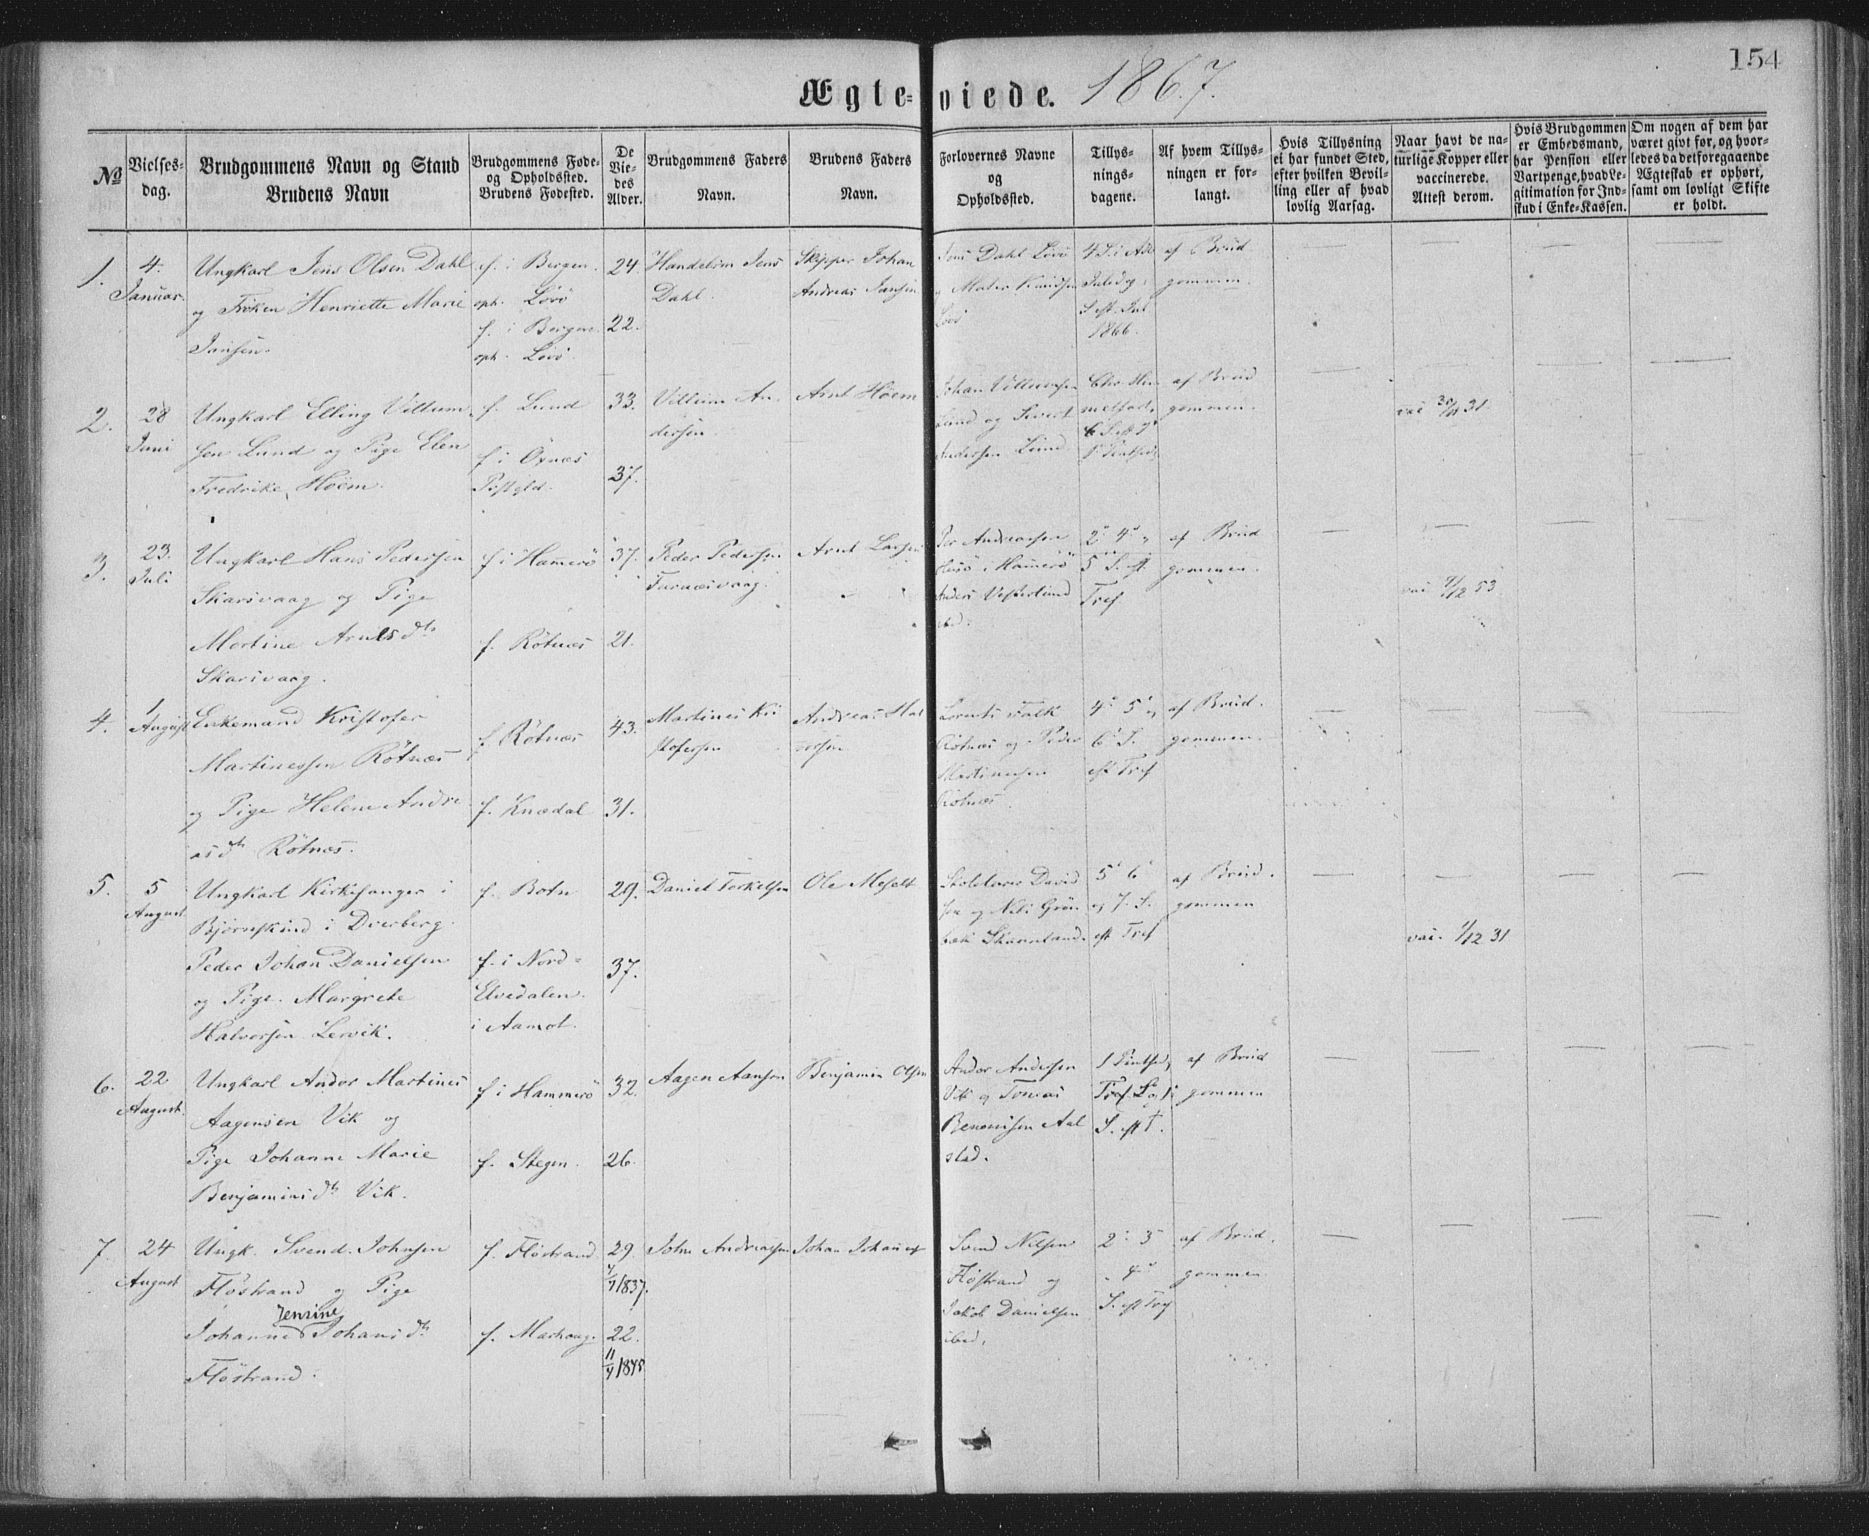 154
Ægte-viede. 1867.
№
Vielses-
dag.
Brudgommens Navn og Stand
Brudens Navn
Brudgommens Føde-
og Opholdssted.
Brudens Fødested.
De
Vie-
des
Alder.
Brudgommens Faders
Navn.
Brudens Faders
Navn.
Forlovernes Navne
og
Opholdssted.
Tillys-
nings-
dagene.
Af hvem Tillys-
ningen er for-
langt.
Hvis Tillysning
ei har fundet Sted,
efter hvilken Bevil-
ling eller af hvad
lovlig Aarsag.
Naar havt de na-
turlige Kopper eller
vaccinerede.
Attest derom.
Hvis Brudgommen
er Embedsmand,
har Pension eller
Vartpenge, hvad Le-
gitimation for Ind-
skud i Enke-Kassen.
Om nogen af dem har
været givt før, og hvor-
ledes da det foregaaende
Ægteskab er ophørt,
samt om lovligt Skifte
er holdt.
1.
4.
Januar.
Ungkarl Jens Olsen Dahl
og Frøken Henriette Marie
Jansen.
f. i Bergen.
oph. Lövö
f. i Bergen.
oph. Lövö.
24
22.
Handelsm Jens
Dahl.
Skipper Johan
Andreas Jansen
Jens Dahl Lövö
Knudsen
Lövö
4 S. i Ad
Juledag,
S. eft. Jul
1866.
af Brud
gommen.
2.
28
Juni
Ungkarl Elling Villum
sen Lund og Pige Elen
Fredrike Höem.
f. Lund
f. i Öxnæs
Pstgld.
33.
37.
Villum An
dersen.
Arnt Höem
Johan Villumsen
Lund og Sivert
Andersen Lund
af Brud
gommen.
vac 30/11 31.
3.
23.
Juli
Ungkarl Hans Pedersen
Skarsvaag og Pige
Martine Arntsdtr
Skarsvaag.
f. i Hamerö
f. Rötnæs
37.
21.
Peder Pedersen
Furnæsvaag.
Arnt Larsen
Per Andreassen
i Hamerö
Anders Vesterlund
ibid.
2' 4' "
5 S. eft.
Tref.
af Brud
gommen.
vac /12 53
4.
1
August
Enkemand Kristofer
Martinessen Rötnæs
og Pige Helene Andre
asdtr Rötnæs.
f. Rötnæs
f. Knædal
43.
31.
Martines Kri
stofersen
Andreas Hal
vorsen
Lorents Falk
Rötnæs og Peder
Martinesen
Rötnæs.
4' 5' og
6' S.
eft Tref
af Brud.
gommen.
5.
5
August
Ungkarl Kirkesanger i
Bjørnskind i Dverberg
Peder Johan Danielsen
og Pige Margrete
Halversen Lervik.
f. Botn
f. i Nord-
Elvedalen.
i Aamot.
29.
37.
Daniel Torkelsen
Ole Moselt
Skolelærer David
sen og Nils Grön
bæk Skannland.
5' 6'
og 7. S.
eft Tref
af Brud.
gommen
vac. 1/12 31
6.
22
August.
Ungkarl Andor Martines
Aagensen Vik og
Pige Johanne Marie
Benjaminsdtr Vik.
f. i Hammerö
f. Stegen.
32.
26.
Aagen Aansen
Benjamin Olsen
Andor Andersen
Vik og Tomas
Benonisen Aal
stad.
1 Pintsed,
Tref. S og 1'
S. eft T.
af Brud
gommen
7.
24
August
Ungk. Svend Johnsen
Flöstrand og Pige
Jensine
Johanne Johansdtr
Flöstrand.
f. Flöstrand
f. Marhaug.
29.
4/7 1837.
22.
11/4 1845
John Andreassen
Johan Johanes
Svend Nilsen
Flöstrand og
Jakob Danielsen
ibid.
2' 3
" 4'
S. eft Tref
af Brud.
gommen